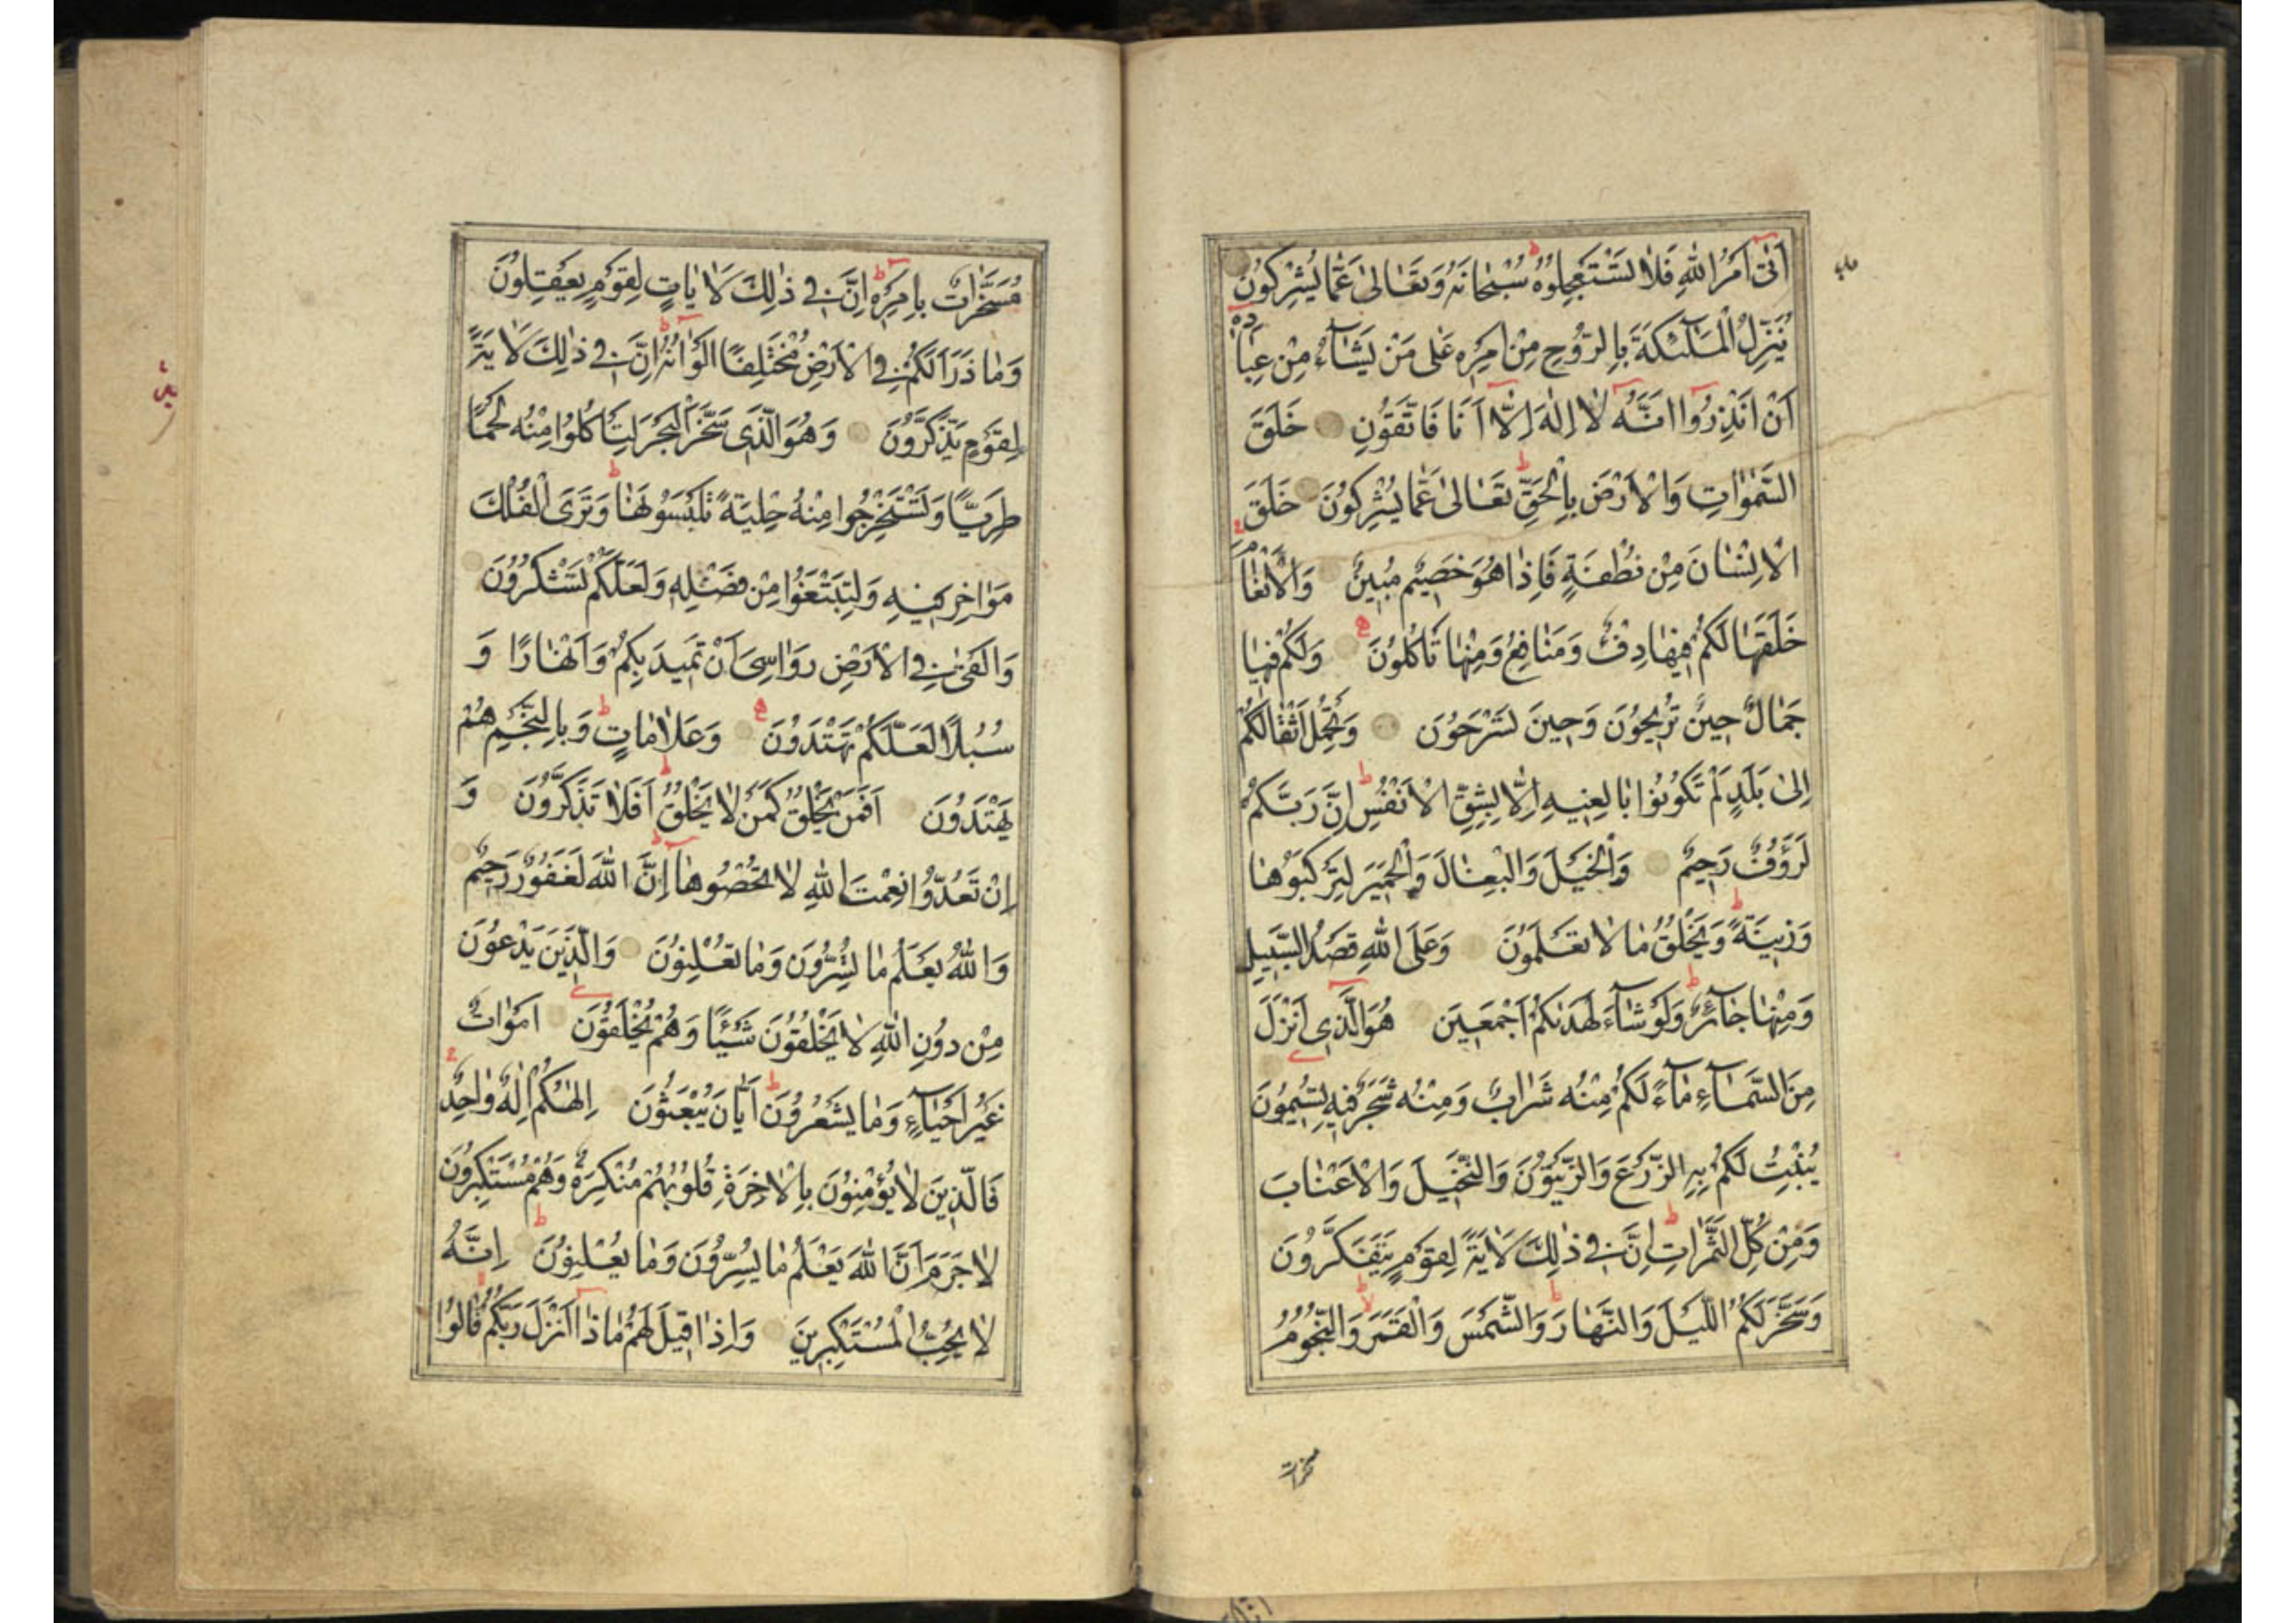 اَتٰىٓ اَمْرُ اللّٰهِ فَلَا تَسْتَعْجِلُوهُ سُبْحَانَهُ وَتَعَالٰى عَمَّا يُشْرِكُونَ
يُنَزِّلُ الْمَلٰٓئِكَةَ بِالرُّوحِ مِنْ اَمْرِهِ عَلٰى مَنْ يَشَآءُ مِنْ عِبَادِهِٓ
اَنْ اَنْذِرُٓوا اَنَّهُ لَٓا اِلٰهَ اِلَّٓا اَنَا فَاتَّقُونِ خَلَقَ
السَّمٰوَاتِ وَالْاَرْضَ بِالْحَقِّ تَعَالٰى عَمَّا يُشْرِكُونَ خَلَقَ
الْاِنْسَانَ مِنْ نُطْفَةٍ فَاِذَا هُوَ خَصِيمٌ مُبِينٌ وَالْاَنْعَامَ
خَلَقَهَا لَكُمْ فِيهَا دِفْءٌ وَمَنَافِعُ وَمِنْهَا تَأْكُلُونَ وَلَكُمْ فِيهَا
جَمَالٌ حِينَ تُرِيحُونَ وَحِينَ تَسْرَحُونَ وَتَحْمِلُ اَثْقَالَكُمْ
اِلٰى بَلَدٍ لَمْ تَكُونُوا بَالِغِيهِ اِلَّا بِشِقِّ الْاَنْفُسِ اِنَّ رَبَّكُمْ
لَرَؤُفٌ رَحِيمٌ وَالْخَيْلَ وَالْبِغَالَ وَالْحَمِيرَ لِتَرْكَبُوهَا
وَزِينَةً وَيَخْلُقُ مَا لَا تَعْلَمُونَ وَعَلَى اللّٰهِ قَصْدُ السَّبِيلِ
وَمِنْهَا جَآئِرٌ وَلَوْ شَآءَ لَهَدٰيكُمْ اَجْمَعِينَ هُوَ الَّذِٓى اَنْزَلَ
مِنَ السَّمَآءِ مَآءً لَكُمْ مِنْهُ شَرَابٌ وَمِنْهُ شَجَرٌ فِيهِ تُسِيمُونَ
يُنْبِتُ لَكُمْ بِهِ الزَّرْعَ وَالزَّيْتُونَ وَالنَّخِيلَ وَالْاَعْنَابَ
وَمِنْ كُلِّ الثَّمَرَاتِ اِنَّ فِى ذٰلِكَ لَاٰيَةً لِقَوْمٍ يَتَفَكَّرُونَ
وَسَخَّرَ لَكُمُ الَّيْلَ وَالنَّهَارَ وَالشَّمْسَ وَالْقَمَرَ وَالنُّجُومُ
مسخرات
مُسَخَّرَاتٌ بِاَمْرِهِٓ اِنَّ فِى ذٰلِكَ لَاٰيَاتٍ لِقَوْمٍ يَعْقِلُونَ
وَمَا ذَرَاَ لَكُمْ فِى الْاَرْضِ مُخْتَلِفًا اَلْوَانُهُٓ اِنَّ فِى ذٰلِكَ لَاٰيَةً
لِقَوْمٍ يَذَّكَّرُونَ وَهُوَ الَّذِى سَخَّرَ الْبَحْرَ لِتَأْكُلُوا مِنْهُ لَحْمًا
طَرِيًّا وَتَسْتَخْرِجُوا مِنْهُ حِلْيَةً تَلْبَسُونَهَا وَتَرَى الْفُلْكَ
مَوَاخِرَ فِيهِ وَلِتَبْتَغُوا مِنْ فَضْلِهِ وَلَعَلَّكُمْ تَشْكُرُونَ
وَاَلْقٰى فِى الْاَرْضِ رَوَاسِىَ اَنْ تَمِيدَ بِكُمْ وَاَنْهَارًا وَ
سُبُلًا لَعَلَّكُمْ تَهْتَدُونَ وَعَلَامَاتٍ وَبِالنَّجْمِ هُمْ
يَهْتَدُونَ اَفَمَنْ يَخْلُقُ كَمَنْ لَا يَخْلُقُ اَفَلَا تَذَكَّرُونَ وَ
اِنْ تَعُدُّوا نِعْمَتَ اللّٰهِ لَا تُحْصُوهَٓا اِنَّ اللّٰهَ لَغَفُورٌ رَحِيمٌ
وَاللّٰهُ يَعْلَمُ مَا تُسِرُّونَ وَمَا تُعْلِنُونَ وَالَّذِينَ يَدْعُونَ
مِنْ دُونِ اللّٰهِ لَا يَخْلُقُونَ شَيْئًا وَهُمْ يُخْلَقُونَ اَمْوَاتٌ
غَيْرُ اَحْيَآءٍ وَمَا يَشْعُرُونَ اَيَّانَ يُبْعَثُونَ اِلٰهُكُمْ اِلٰهٌ وَاحِدٌ
فَالَّذِينَ لَا يُؤْمِنُونَ بِالْاٰخِرَةِ قُلُوبُهُمْ مُنْكِرَةٌ وَهُمْ مُسْتَكْبِرُونَ
لَا جَرَمَ اَنَّ اللّٰهَ يَعْلَمُ مَا يُسِرُّونَ وَمَا يُعْلِنُونَ اِنَّهُ
لَا يُحِبُّ الْمُسْتَكْبِرِينَ وَاِذَا قِيلَ لَهُمْ مَاذَٓا اَنْزَلَ رَبُّكُمْ قَالُٓوا